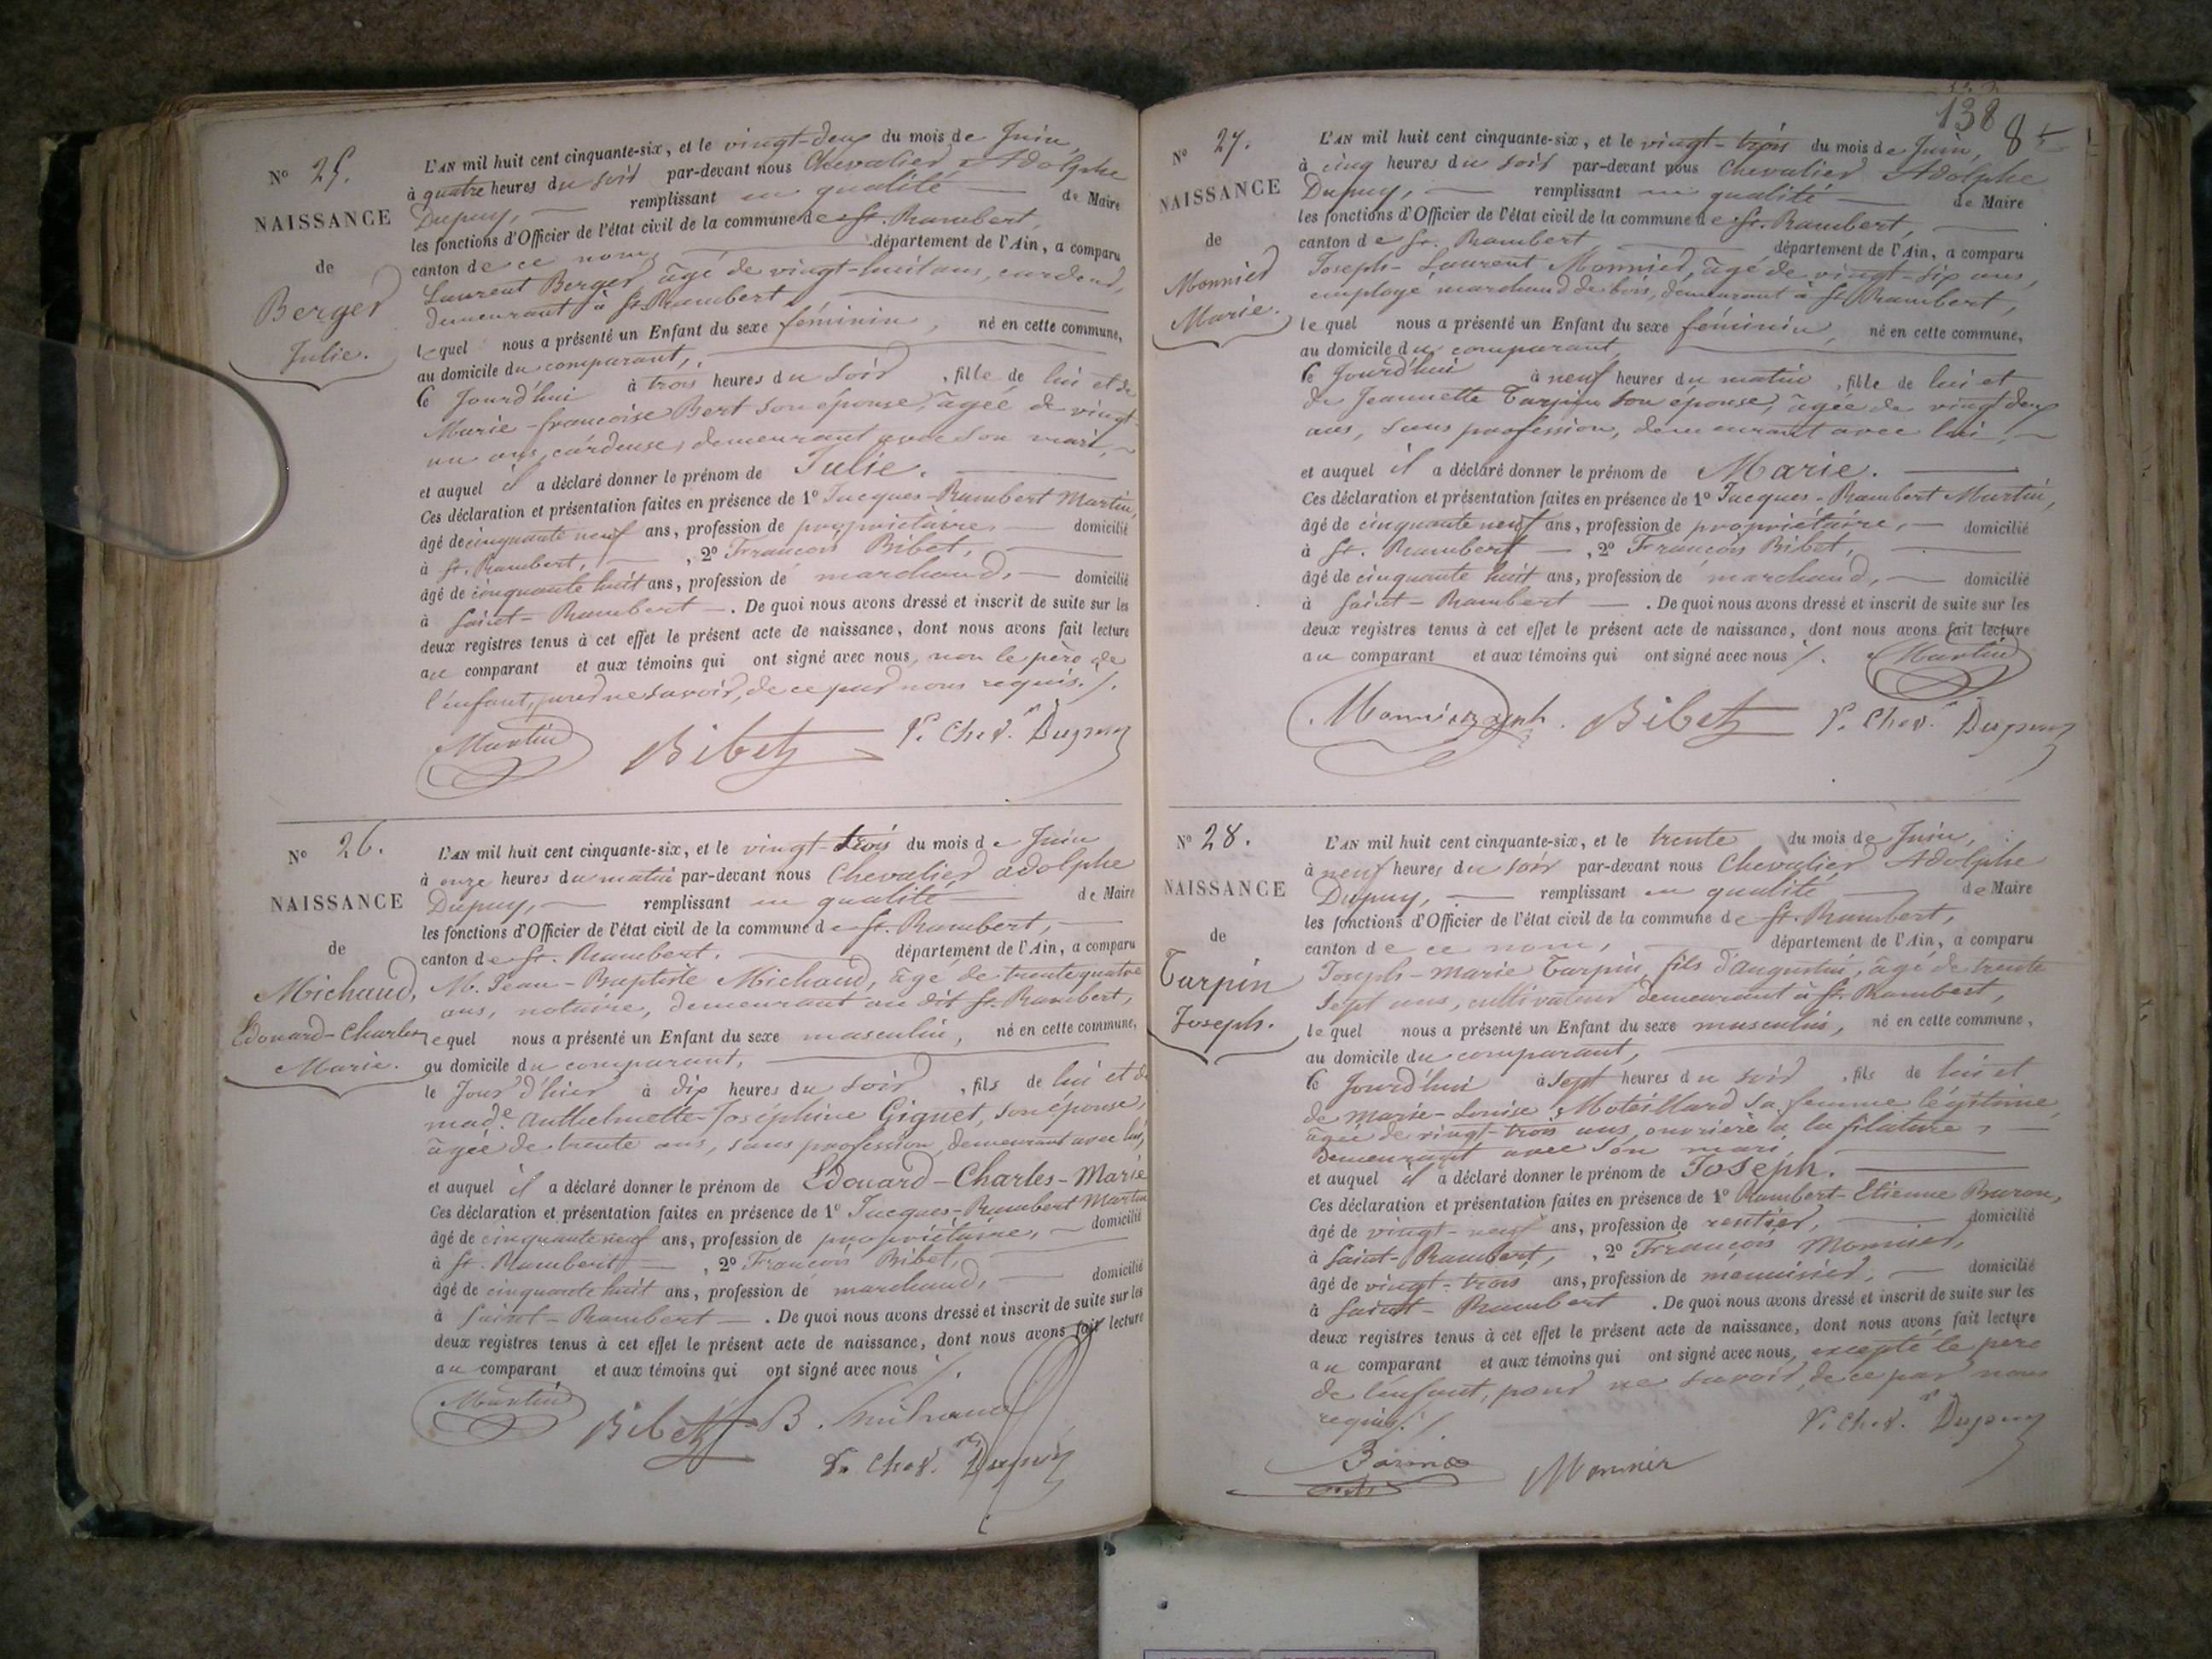 N° 25.
NAISSANCE
de
Berger
Julie.
L'AN mil huit cent cinquante-six, et le vingt-deux du mois de Juin,
à quatre heures du soir par-devant nous Chevalier Adolphe
Dupuy, remplissant en qualité de Maire
les fonctions d'Officier de l'état civil de la commune de St. Rambert,
canton de ce nom, département de l'Ain, a comparu
Laurent Berger, âgé de vingt-huit ans, cardeur,
demeurant à St. Rambert,
lequel nous a présenté un Enfant du sexe féminin, né en cette commune,
au domicile du comparant,
le Jourd'hui à trois heures du soir, fille de lui et de
Marie-françoise Bert son épouse, âgée de vingt-
un ans, cardeuse, demeurant avec son mari,
et auquel il a déclaré donner le prénom de Julie.
Ces déclaration et présentation faites en présence de 1° Jacques-Rambert Martin,
âgé de cinquante neuf ans, profession de propriétaire, domicilié
à St. Rambert, , 2° François Bibet,
âgé de cinquante huit ans, profession de marchand, domicilié
à Saint-Rambert . De quoi nous avons dressé et inscrit de suite sur les
deux registres tenus à cet effet le présent acte de naissance, dont nous avons fait lecture
au comparant et aux témoins qui ont signé avec nous, non le père de
l'enfant, pour ne savoir, de ce par nous requis./.
Martin Bibet Chev.r Dupuy
N° 26.
NAISSANCE
de
Michaud,
Edouard-Charles
Marie.
L'AN mil huit cent cinquante-six, et le vingt-trois du mois de Juin
à onze heures du matin par-devant nous Chevalier adolphe
Dupuy, remplissant en qualité de Maire
les fonctions d'Officier de l'état civil de la commune de St. Rambert,
canton de St. Rambert. département de l'Ain, a comparu
M. Jean-Baptiste Michaud, âgé de trente quatre
ans, notaire, demeurant au dit St. Rambert,
lequel nous a présenté un Enfant du sexe masculin, né en cette commune,
au domicile du comparant,
le Jour d'hier à dix heures du soir, fils de lui et de
mad.e Anthelmette-Joséphine Giguet, son épouse,
âgée de trente ans, sans profession, demeurant avec lui,
et auquel il a déclaré donner le prénom de Edouard-Charles-Marie
Ces déclaration et présentation faites en présence de 1° Jacques-Rambert Martin
âgé de cinquante neuf ans, profession de propriétaire, domicilié
à St. Rambert , 2° François Bibet,
âgé de cinquante huit ans, profession de marchand, domicilié
à Saint-Rambert . De quoi nous avons dressé et inscrit de suite sur les
deux registres tenus à cet effet le présent acte de naissance, dont nous avons fait lecture
au comparant et aux témoins qui ont signé avec nous /.
Martin Bibet B.
Chev. Dupuy
138 8
N° 27.
NAISSANCE
de
Monnier
Marie.
L'AN mil huit cent cinquante-six, et le vingt-trois du mois de Juin,
à cinq heures du soir par-devant nous Chevalier Adolphe
Dupuy, remplissant en qualité de Maire
les fonctions d'Officier de l'état civil de la commune de St. Rambert,
canton de St. Rambert, département de l'Ain, a comparu
Joseph-Laurent Monnier, âgé de vingt-six ans,
employé marchand de bois, demeurant à St. Rambert,
lequel nous a présenté un Enfant du sexe féminin, né en cette commune,
au domicile du comparant,
le Jourd'hui à neuf heures du matin, fille de lui et
de Jeannette Tarpin son épouse, âgée de vingt deux
ans, sans profession, demeurant avec lui,
et auquel il a déclaré donner le prénom de Marie.
Ces déclaration et présentation faites en présence de 1° Jacques-Rambert Martin,
âgé de cinquante neuf ans, profession de propriétaire, domicilié
à St. Rambert , 2° François Bibet,
âgé de cinquante huit ans, profession de marchand, domicilié
à Saint-Rambert . De quoi nous avons dressé et inscrit de suite sur les
deux registres tenus à cet effet le présent acte de naissance, dont nous avons fait lecture
au comparant et aux témoins qui ont signé avec nous /. Martin
Monnier Bibet Chev.r Dupuy
N° 28.
NAISSANCE
de
Tarpin
Joseph.
L'AN mil huit cent cinquante-six, et le trente du mois de Juin,
à neuf heures du soir par-devant nous Chevalier Adolphe
Dupuy, remplissant en qualité de Maire
les fonctions d'Officier de l'état civil de la commune de St. Rambert,
canton de ce nom, département de l'Ain, a comparu
Joseph-marie Tarpin, fils d'augustin, âgé de trente
sept ans, cultivateur demeurant à St. Rambert,
lequel nous a présenté un Enfant du sexe masculin, né en cette commune,
au domicile du comparant,
le Jourd'hui à sept heures du soir, fils de lui et
de Marie-Louise Moteillard sa femme légitime,
âgée de vingt-trois ans, ouvrière à la filature,
demeurant avec son mari,
et auquel il a déclaré donner le prénom de Joseph.
Ces déclaration et présentation faites en présence de 1° Rambert-Etienne Buron,
âgé de vingt-neuf ans, profession de rentier, domicilié
à Saint-Rambert, , 2° François Monnier,
âgé de vingt-trois ans, profession de menuisier, domicilié
à Saint-Rambert . De quoi nous avons dressé et inscrit de suite sur les
deux registres tenus à cet effet le présent acte de naissance, dont nous avons fait lecture
au comparant et aux témoins qui ont signé avec nous, excepté le père
de l'enfant, pour ne savoir, de ce par nous
requis./. Chev.r Dupuy
Monnier